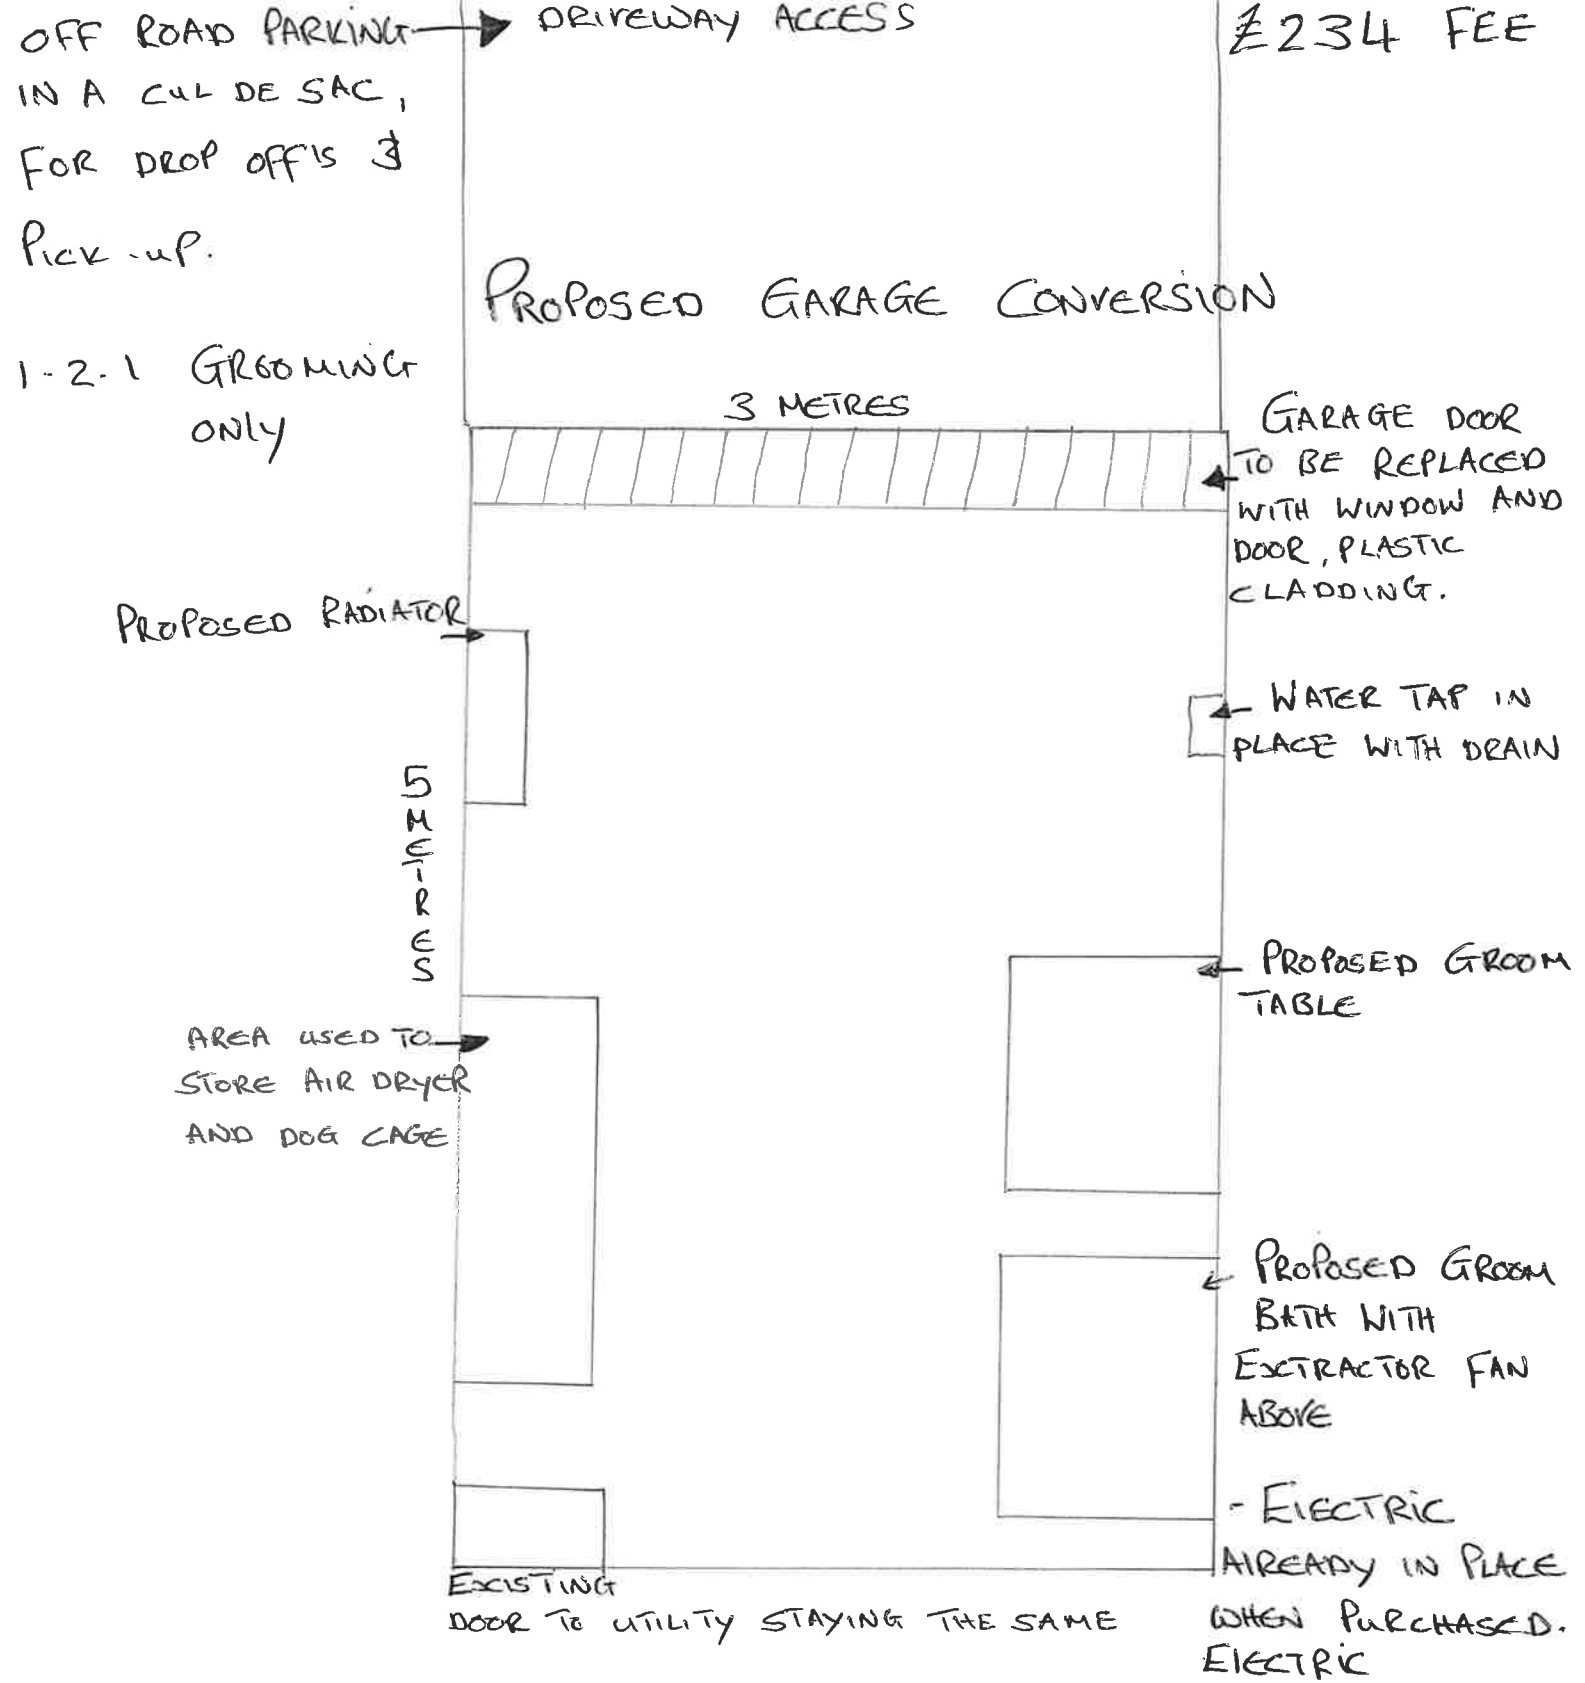 OFF ROAD PARKING
IN A CUL DE SAC,
FOR DROP OFF'S &
PICK-UP.
DRIVEWAY ACCESS
£234 FEE
PROPOSED GARAGE CONVERSION
1-2-1 GROOMING
ONLY
3 METRES
GARAGE DOOR
TO BE REPLACED
WITH WINDOW AND
DOOR, PLASTIC
CLADDING.
PROPOSED RADIATOR
WATER TAP IN
PLACE WITH DRAIN
5 METRES
PROPOSED GROOM
TABLE
AREA USED TO
STORE AIR DRYER
AND DOG CAGE
PROPOSED GROOM
BATH WITH
EXTRACTOR FAN
ABOVE
- ELECTRIC
ALREADY IN PLACE
WHEN PURCHASED.
ELECTRIC
EXISTING
DOOR TO UTILITY STAYING THE SAME